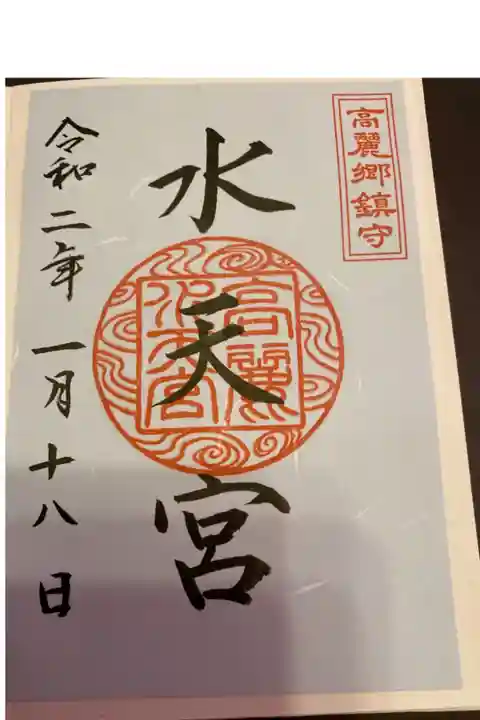 高麗郷鎮守
水天宮
高麗
水天宮
令和二年一月十八日